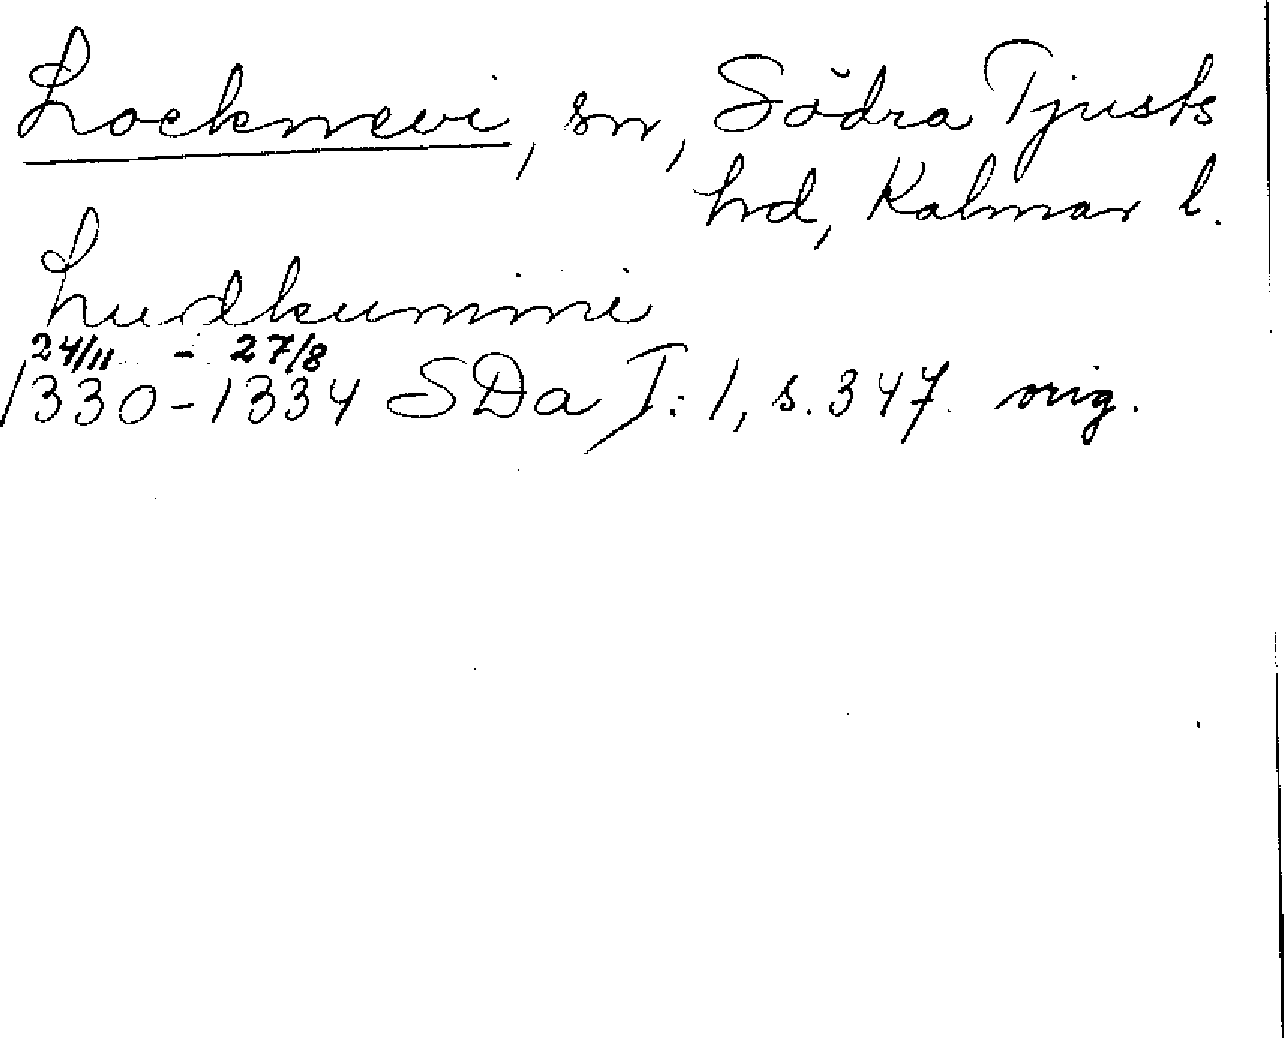 Locknevi, sn, Södra Tjusts
hd, Kalmar l.
Ludkummi
24/11 - 27/8
1330-1334 SDa I: 1, s. 347 orig.